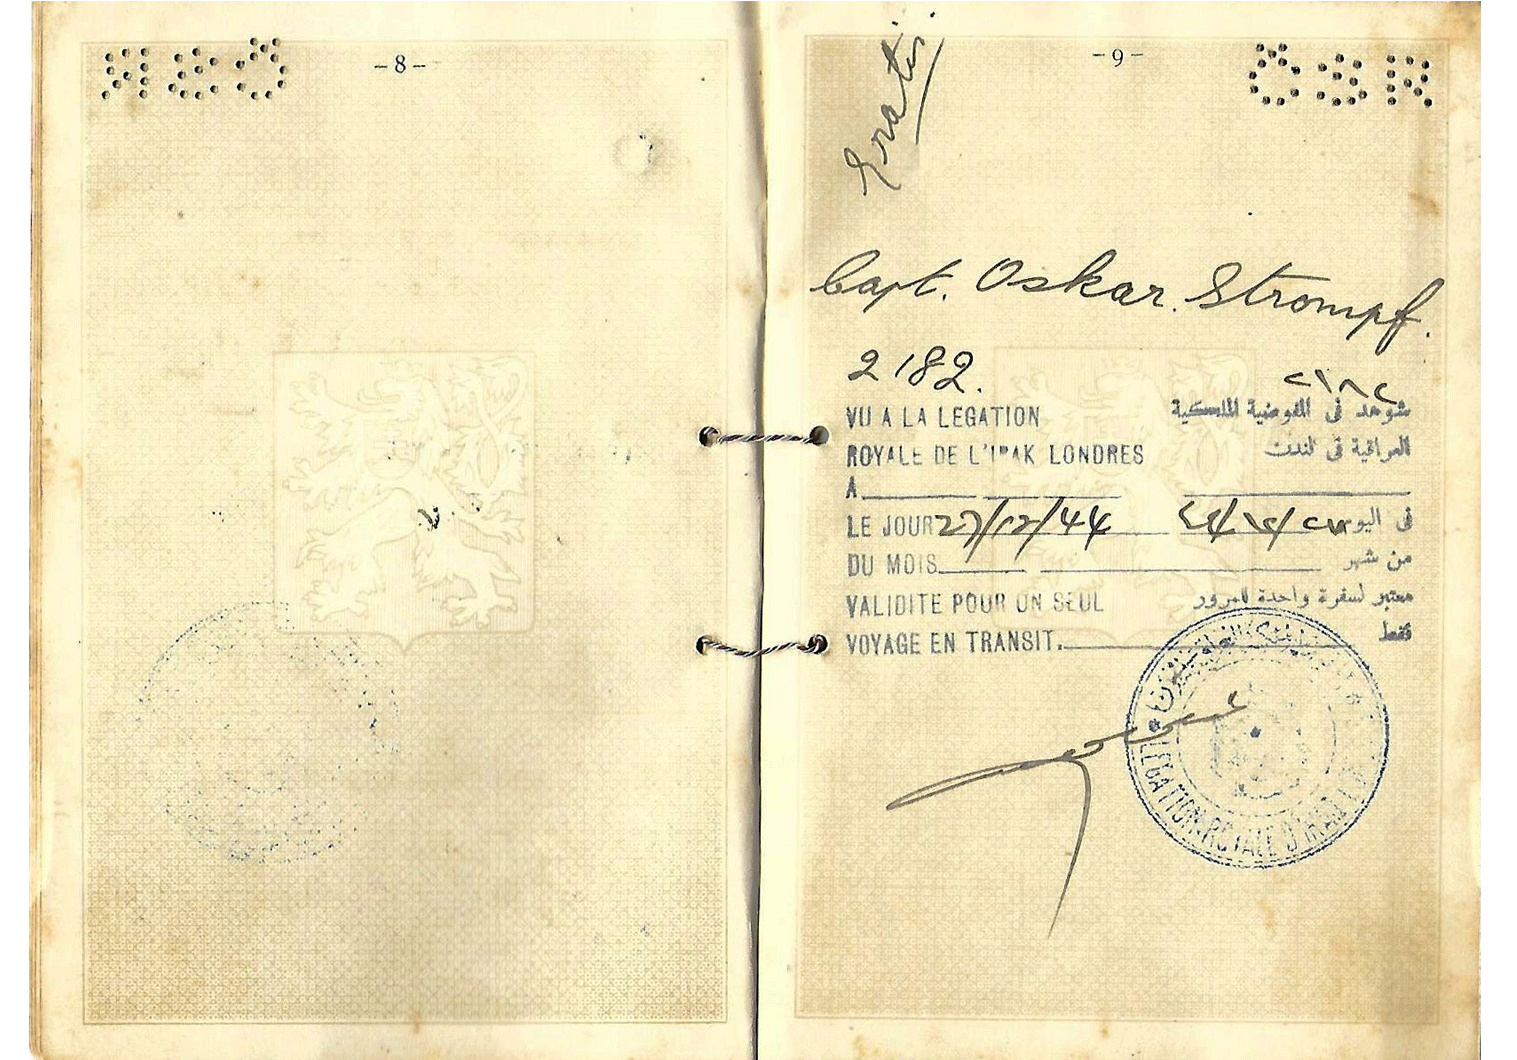 -8-
-9-
ČSR
Gratis
Capt. Oskar. Strompf.
2182.
٢١٨٢
VU A LA LEGATION
شوهد في المفوضية الملكية
ROYALE DE L'IRAK LONDRES
العراقية في لندن
A
LE JOUR 27/12/44
في اليوم ٢٧/١٢/٤٤
DU MOIS
من شهر
VALIDITE POUR UN SEUL
معتبر لسفرة واحدة للمرور
VOYAGE EN TRANSIT.
فقط
LEGATION ROYALE D'IRAK